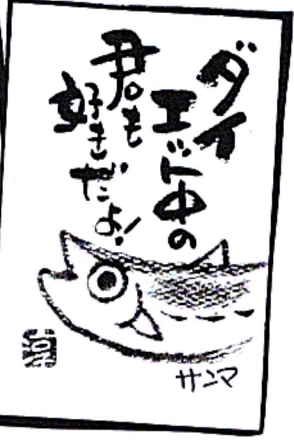 ダイ
エット中の
君も
好きだよ!
サンマ